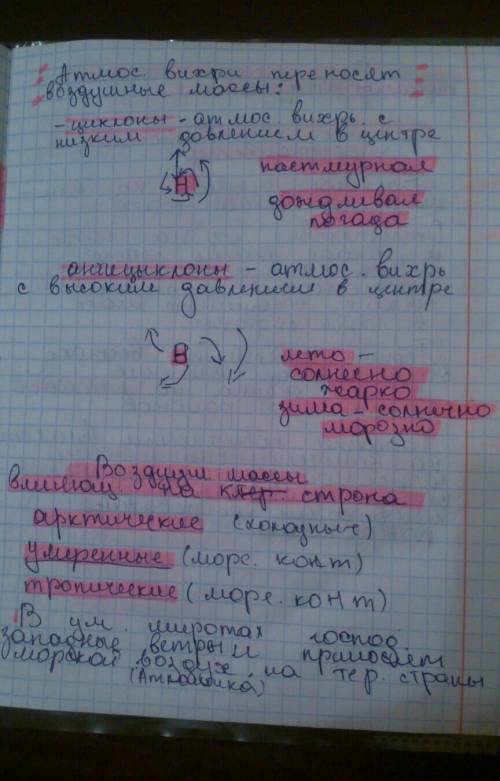 Атмос. вихри переносят
воздушные массы:
- циклоны - атмос. вихрь с
низким давлением в центре
Н
пасмурная
дождливая
погода
антицыклоны - атмос. вихрь
с высоким давлением в центре
В
лето -
солнечно
жарко
зима - солнечно
морозно
Воздушн массы
влияющ на строна
арктические (холодные)
умеренные (морс. конт)
тропические (морс. конт)
В ум. широтах господ.
западные ветры и приносят
морской воздух на тер. страны
(Атлантика)